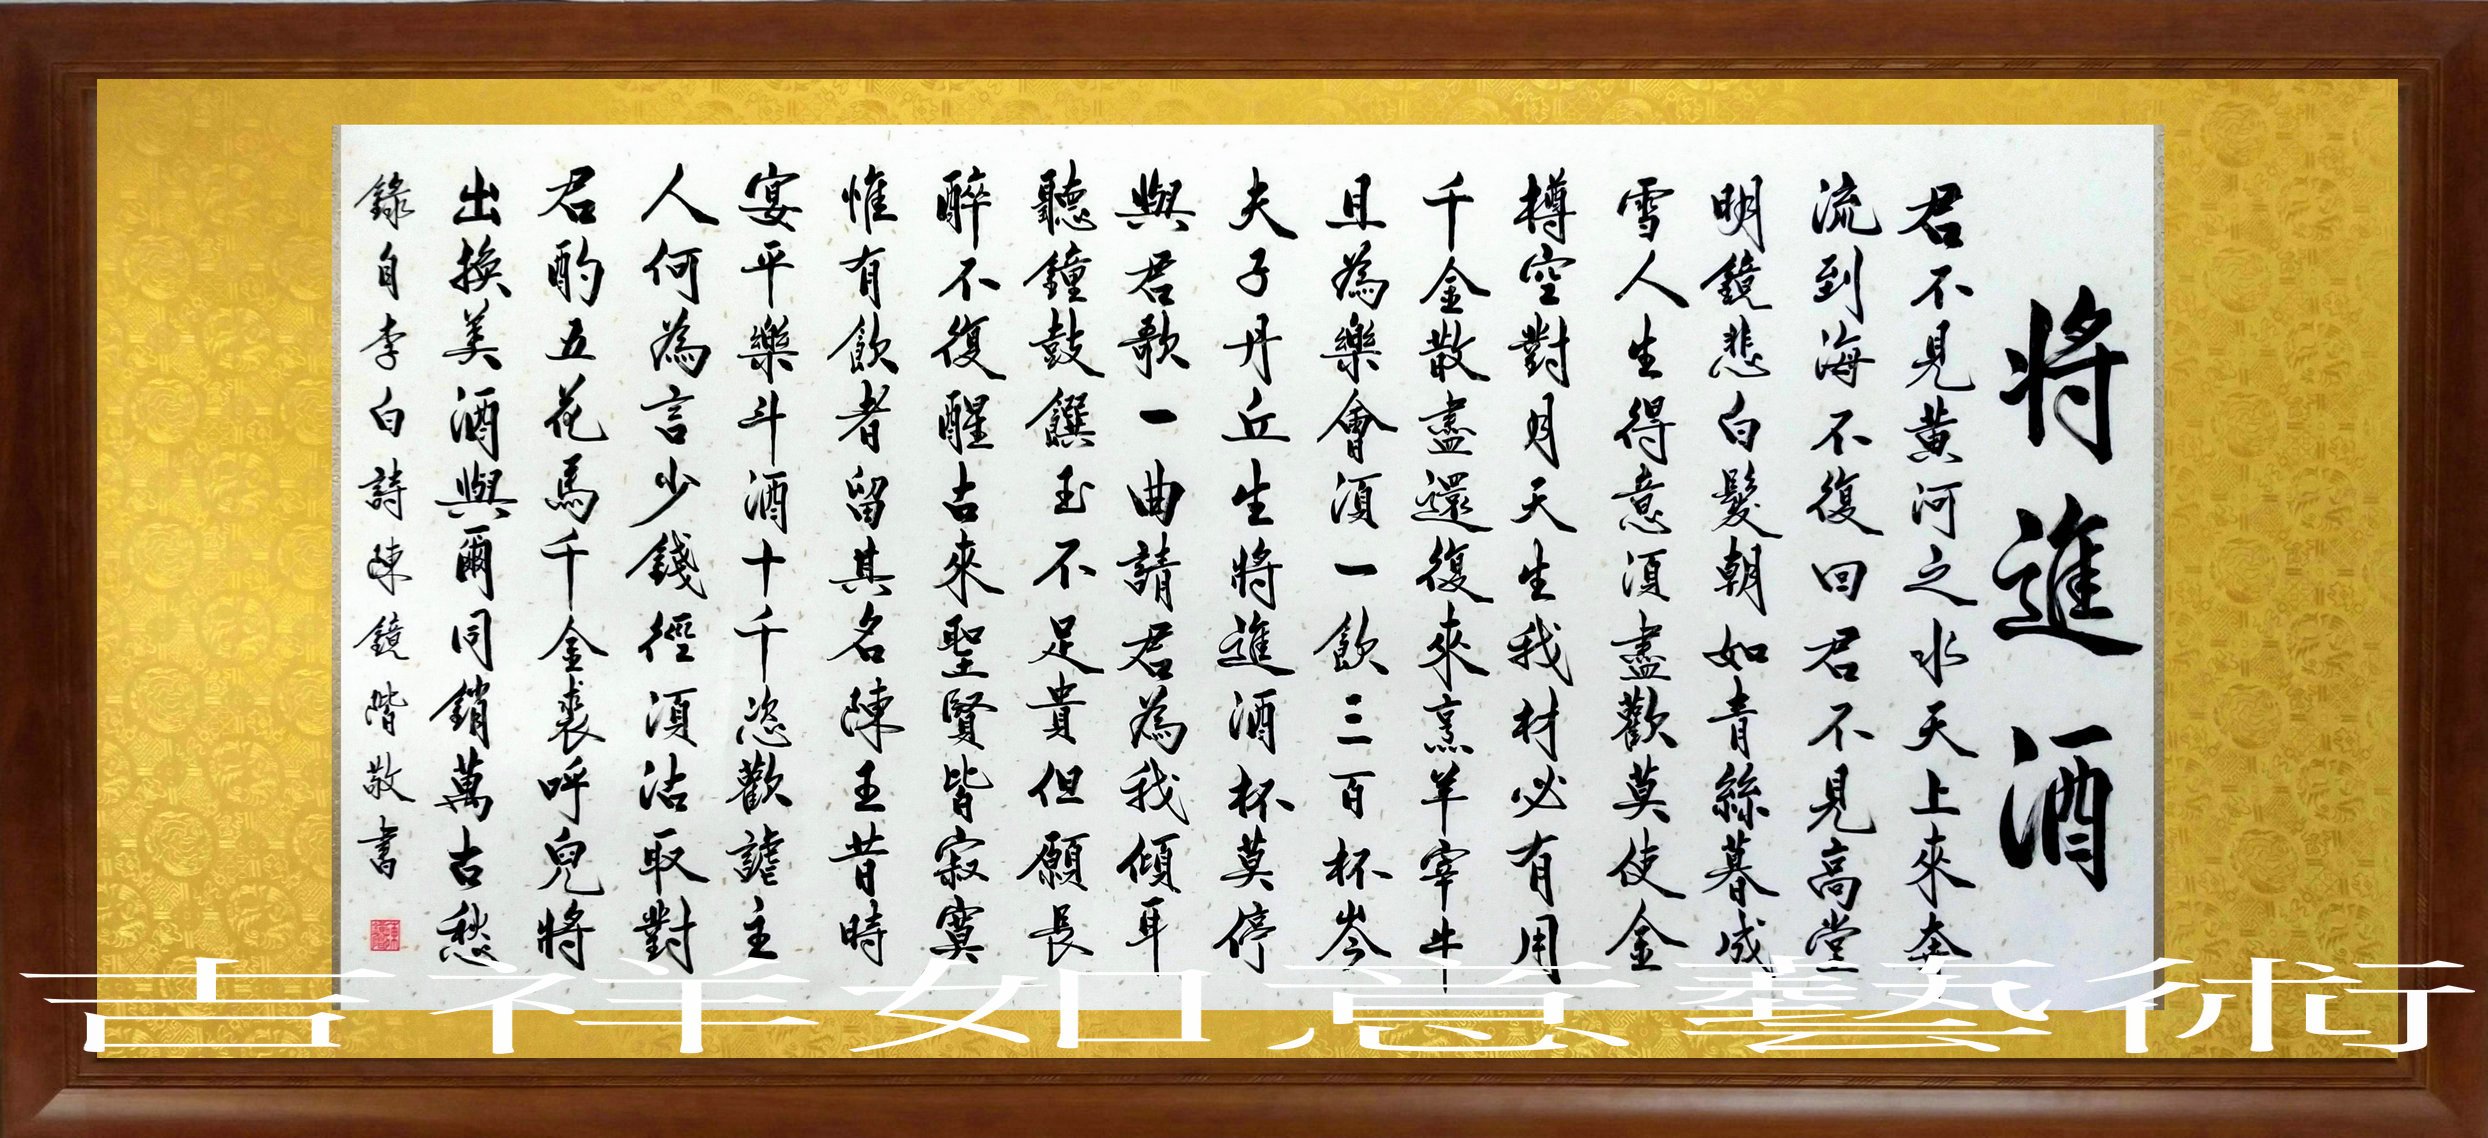 將進酒
君不見黃河之水天上來奔
流到海不復回君不見高堂
明鏡悲白髮朝如青絲暮成
雪人生得意須盡歡莫使金
樽空對月天生我材必有用
千金散盡還復來烹羊宰牛
且為樂會須一飲三百杯岑
夫子丹丘生將進酒杯莫停
與君歌一曲請君為我傾耳
聽鐘鼓饌玉不足貴但願長
醉不復醒古來聖賢皆寂寞
惟有飲者留其名陳王昔時
宴平樂斗酒十千恣歡謔主
人何為言少錢徑須沽取對
君酌五花馬千金裘呼兒將
出換美酒與爾同銷萬古愁
錄自李白詩陳鏡階敬書
吉祥如意藝術